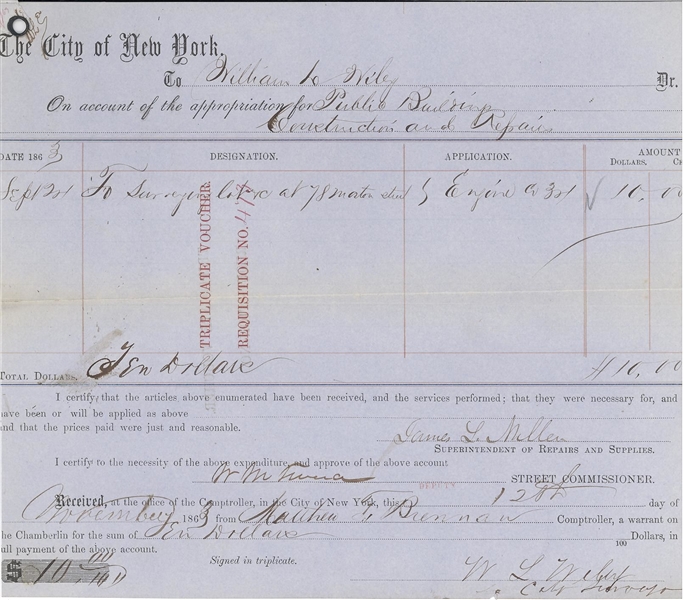 The City of New York.
To William L Wiley Dr.
On account of the appropriation for Public Building
Construction and Repairs
DATE 1863 DESIGNATION. APPLICATION. AMOUNT
DOLLARS.
Sept 24 To Surveying lot &c at 78 Morton street Engine Co 34 10,00
TRIPLICATE VOUCHER.
REQUISITION NO. 417
TOTAL DOLLARS. Ten Dollars 10,00
I certify that the articles above enumerated have been received, and the services performed; that they were necessary for, and
have been or will be applied as above
and that the prices paid were just and reasonable.
James L. Miller
SUPERINTENDENT OF REPAIRS AND SUPPLIES.
I certify to the necessity of the above expenditure, and approve of the above account
W M Tweed
DEPUTY STREET COMMISSIONER.
Received, at the office of the Comptroller, in the City of New York, this 12th day of
November 1863 from Matthew T. Brennan Comptroller, a warrant on
the Chamberlin for the sum of Ten Dollars 100 Dollars, in
full payment of the above account.
$ 10 00/100 Signed in triplicate.
W L Wiley
City Surveyor